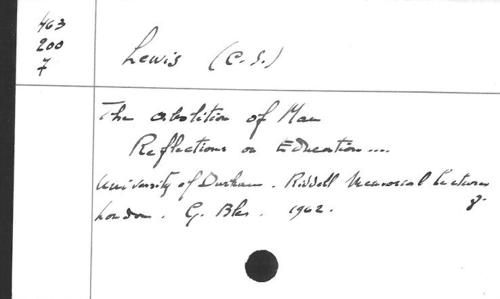 463
200
7
Lewis (C.S.)
The abolition of Man
Reflections on Education....
University of Durham. Riddell Memorial Lectures
London. G. Bles. 1962.